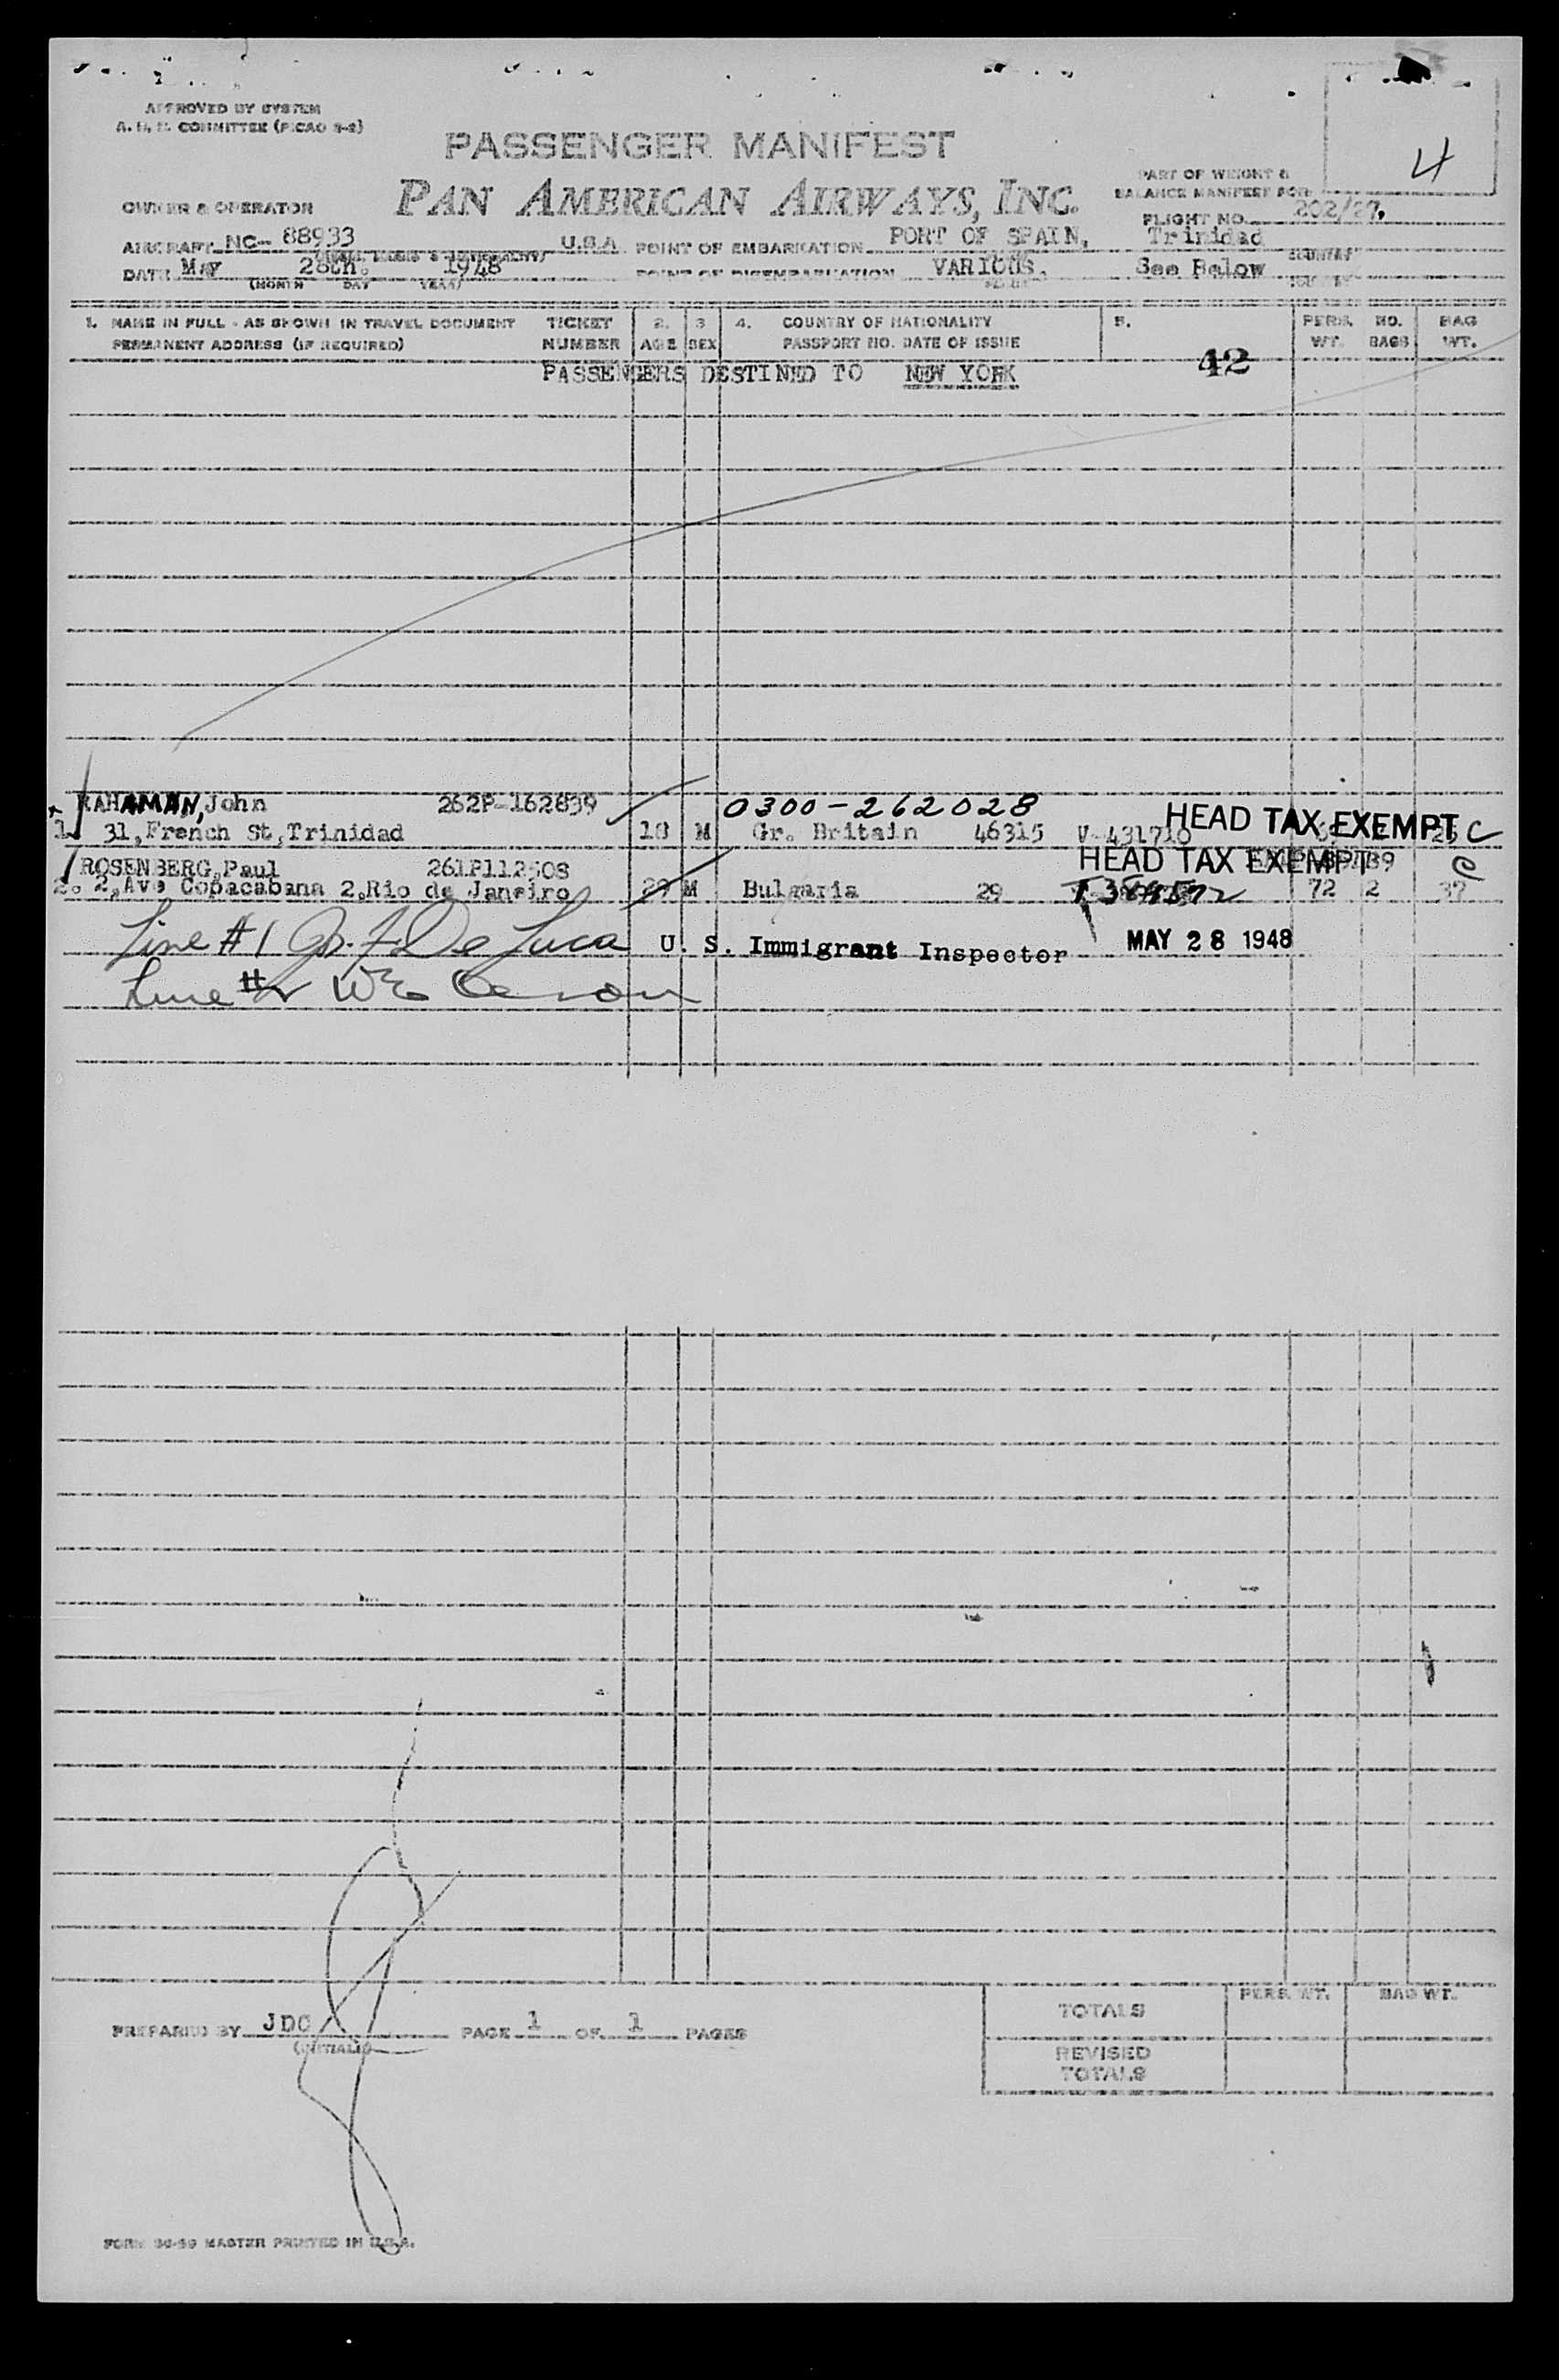 APPROVED BY SYSTEM
A.H.M. COMMITTEE (PICAO 3-2)
4
PASSENGER MANIFEST
PAN AMERICAN AIRWAYS, INC.
PART OF WEIGHT &
BALANCE MANIFEST FOR
OWNER & OPERATOR
FLIGHT NO. 202/27.
AIRCRAFT NC- 88933 U.S.A. POINT OF EMBARKATION PORT OF SPAIN, Trinidad
DATE MAY 28th. 1948 POINT OF DISEMBARKATION VARIOUS, See Below
(MONTH DAY YEAR)
1. NAME IN FULL - AS SHOWN IN TRAVEL DOCUMENT TICKET 2. 3 4. COUNTRY OF NATIONALITY 5. PERS. NO. BAG
PERMANENT ADDRESS (IF REQUIRED) NUMBER AGE SEX PASSPORT NO. DATE OF ISSUE WT. BAGS WT.
PASSENGERS DESTINED TO NEW YORK 42
RAHAMAN, John 262P-162839 0300-262028 HEAD TAX EXEMPT
1. 31, French St, Trinidad 18 M Gr. Britain 46315 V-431710 C
ROSENBERG, Paul 261P112508 HEAD TAX EXEMPT C
2. 2, Ave Copacabana 2, Rio de Janeiro 29 M Bulgaria 29 72 2 37
Line #1 De Luca U. S. Immigrant Inspector MAY 28 1948
Line #2
PREPARED BY JDC PAGE 1 OF 1 PAGES
(INITIALS)
TOTALS PERS. WT. BAG WT.
REVISED
TOTALS
FORM 30-59 MASTER PRINTED IN U.S.A.